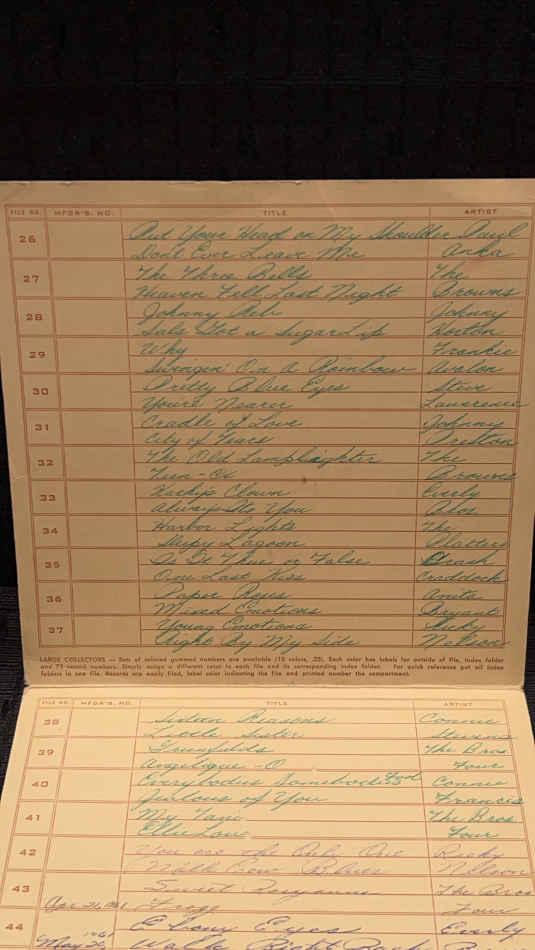 FILE NO. MFGR'S. NO. TITLE ARTIST
26 Put Your Head on My Shoulder Paul
Don't Ever Leave Me Anka
27 The Three Bells The
Heaven Fell Last Night Browns
28 Johnny Reb Johnny
Sal's Got a Sugar Lip Horton
29 Why Frankie
Swingin' On A Rainbow Avalon
30 Pretty Blue Eyes Steve
You're Nearer Lawrence
31 Cradle of Love Johnny
City of Tears Preston
32 The Old Lamplighter The
Teen-Ex Browns
33 Kathy's Clown Everly
Always It's You Bros
34 Harbor Lights The
Sleepy Lagoon Platters
35 Is It True or False Crash
One Last Kiss Craddock
36 Paper Roses Anita
Mixed Emotions Bryant
37 Young Emotions Ricky
Right By My Side Nelson
LARGE COLLECTORS — Sets of colored gummed numbers are available (12 colors, .25). Each color has labels for outside of file, index folder
and 75 record numbers. Simply assign a different color to each file and its corresponding index folder. For quick reference put all index
folders in one file. Records are easily filed, label color indicating the file and printed number the compartment.
FILE NO. MFGR'S. NO. TITLE ARTIST
38 Sixteen Reasons Connie
Little Sister Stevens
39 Greenfields The Bros.
Angelique-O Four
40 Everybodys Somebodys Fool Connie
Jealous of You Francis
41 My Tani The Bros
Ellie Lou Four
42 You are the Only One Ricky
Milk Cow Blues Nelson
43 Sweet The Bros
Apr. 21, 1961 Frogg Four
44 Ebony Eyes Everly
May 26, 1961 Walk Right Back